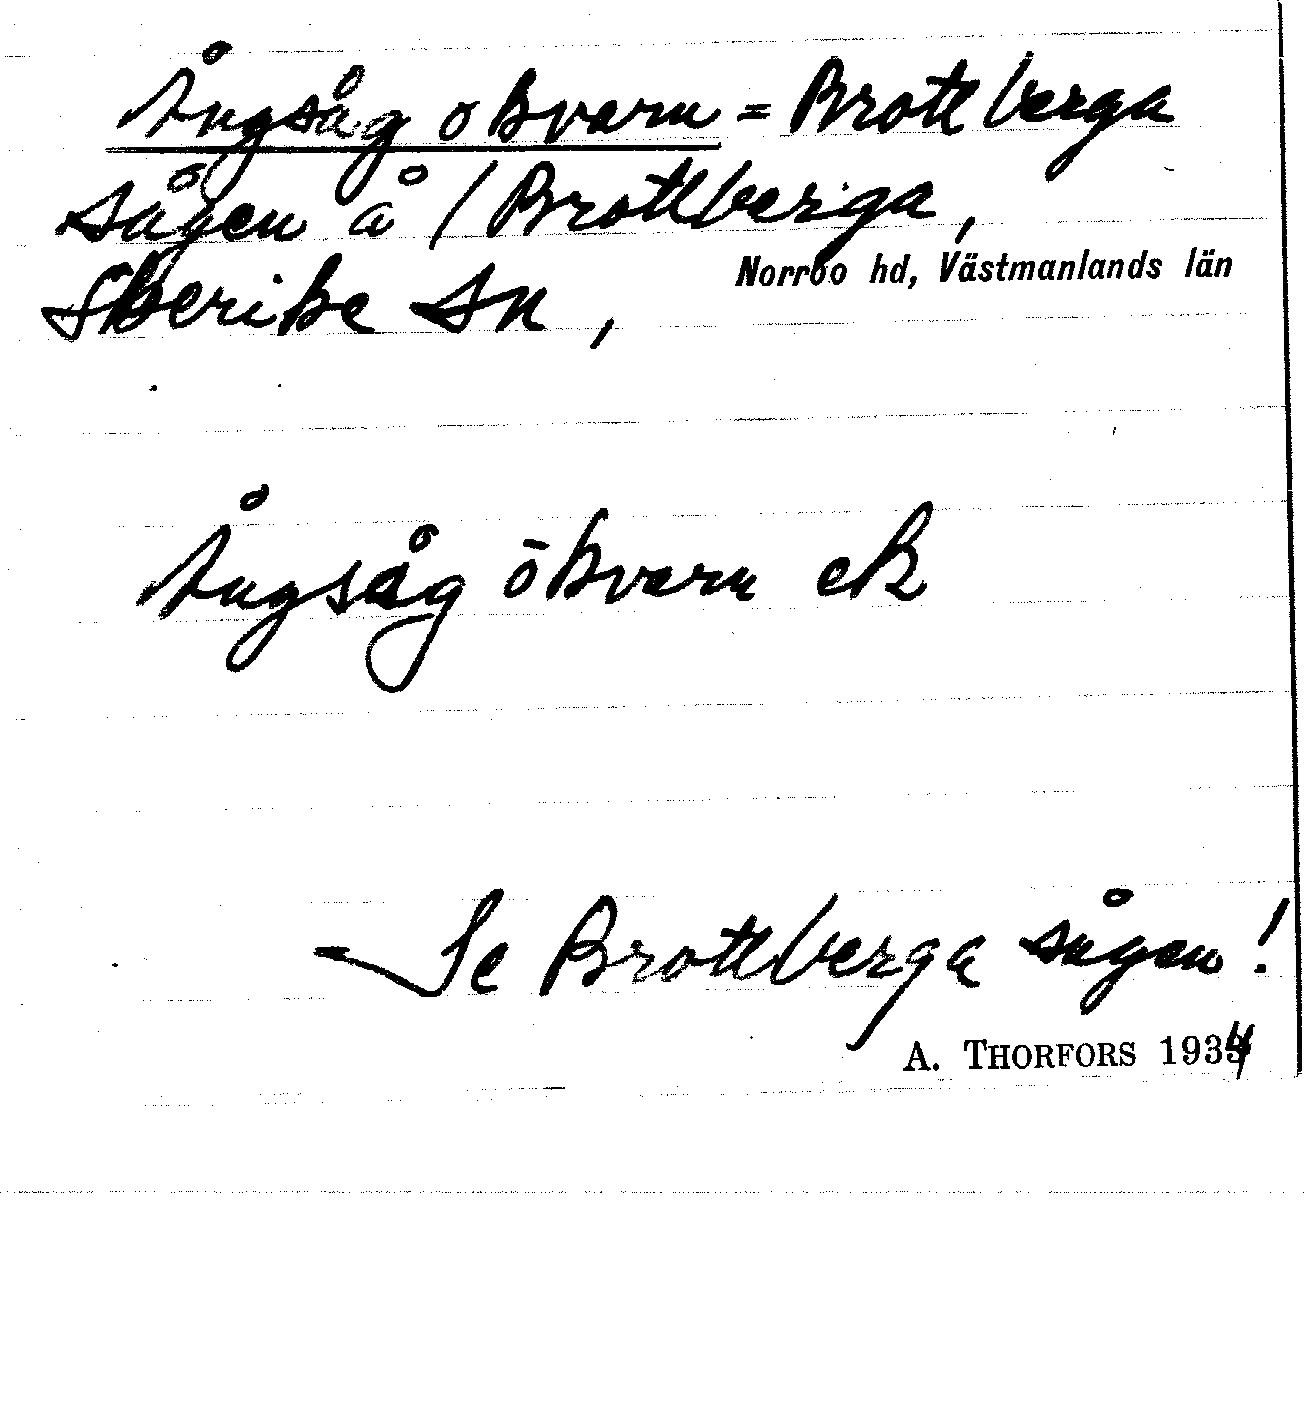 Ångsåg o kvarn = Brottberga
sågen å / Brottberga,
Skerike sn,
Norrbo hd, Västmanlands län
Ångsåg ō kvarn ek
Se Brottberga sågen!
A. THORFORS 1934